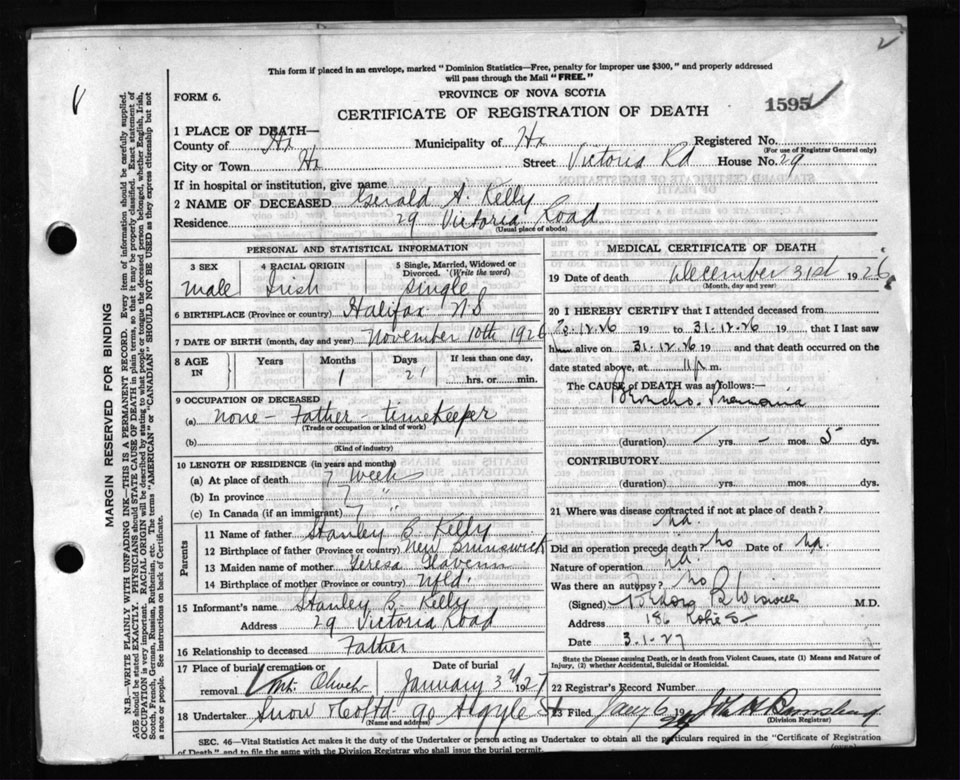 2
This form if placed in an envelope, marked "Dominion Statistics—Free, penalty for improper use $300," and properly addressed
will pass through the Mail "FREE."
FORM 6.
PROVINCE OF NOVA SCOTIA
CERTIFICATE OF REGISTRATION OF DEATH
1595
1 PLACE OF DEATH—
County of Hx Municipality of Hx Registered No.
(For use of Registrar General only)
City or Town Hx Street Victoria Rd House No. 29
If in hospital or institution, give name
2 NAME OF DECEASED Gerald A. Kelly
Residence 29 Victoria Road
(Usual place of abode)
PERSONAL AND STATISTICAL INFORMATION
3 SEX 4 RACIAL ORIGIN 5 Single, Married, Widowed or Divorced. (Write the word)
Male Irish Single
6 BIRTHPLACE (Province or country) Halifax NS
7 DATE OF BIRTH (month, day and year) November 10th 1926
8 AGE IN Years Months Days If less than one day,
1 21 hrs. or min.
9 OCCUPATION OF DECEASED
(a) none - Father - timekeeper
(Trade or occupation or kind of work)
(b)
(Kind of industry)
10 LENGTH OF RESIDENCE (in years and months)
(a) At place of death 7 Weeks
(b) In province 7 "
(c) In Canada (if an immigrant) 7
Parents
11 Name of father Stanley B. Kelly
12 Birthplace of father (Province or country) New Brunswick
13 Maiden name of mother Teresa
14 Birthplace of mother (Province or country) Nfld.
15 Informant's name Stanley B. Kelly
Address 29 Victoria Road
16 Relationship to deceased Father
17 Place of burial cremation or removal Mt. Olivet Date of burial January 3rd 1927
18 Undertaker Snow & Co Ltd 90 Argyle St
(Name and address)
MEDICAL CERTIFICATE OF DEATH
19 Date of death December 31st 1926
(Month, day and year)
20 I HEREBY CERTIFY that I attended deceased from
12.26 19 to 31.12.26 19 that I last saw
him alive on 31.12.26 19 and that death occurred on the
date stated above, at 11 p m.
The CAUSE of DEATH was as follows:
Broncho-Pneumonia
(duration) / yrs. - mos. 5 dys.
CONTRIBUTORY
(duration) yrs. mos. dys.
21 Where was disease contracted if not at place of death?
na.
Did an operation precede death? no Date of na.
Nature of operation na.
Was there an autopsy? no
(Signed) M.D.
Address 186
Date 3-1-27
State the Disease causing Death, or in death from Violent Causes, state (1) Means and Nature of
Injury, (2) whether Accidental, Suicidal or Homicidal.
22 Registrar's Record Number
23 Filed Jany 6 19
(Division Registrar)
SEC. 46—Vital Statistics Act makes it the duty of the Undertaker or person acting as Undertaker to obtain all the particulars required in the "Certificate of Registration
of Death" and to file the same with the Division Registrar who shall issue the burial permit.
MARGIN RESERVED FOR BINDING
N.B.—WRITE PLAINLY WITH UNFADING INK—THIS IS A PERMANENT RECORD. Every item of information should be carefully supplied.
AGE should be stated EXACTLY. PHYSICIANS should STATE CAUSE OF DEATH in plain terms, so that it may be properly classified. Exact statement of
OCCUPATION is very important. RACIAL ORIGIN will be described by stating to what people or tongue the deceased person belonged, whether English, Irish,
Scotch, French, German, Russian, Ruthenian, etc. The terms "AMERICAN" or "CANADIAN" SHOULD NOT BE USED as they express citizenship but not
a race or people. See instructions on back of Certificate.